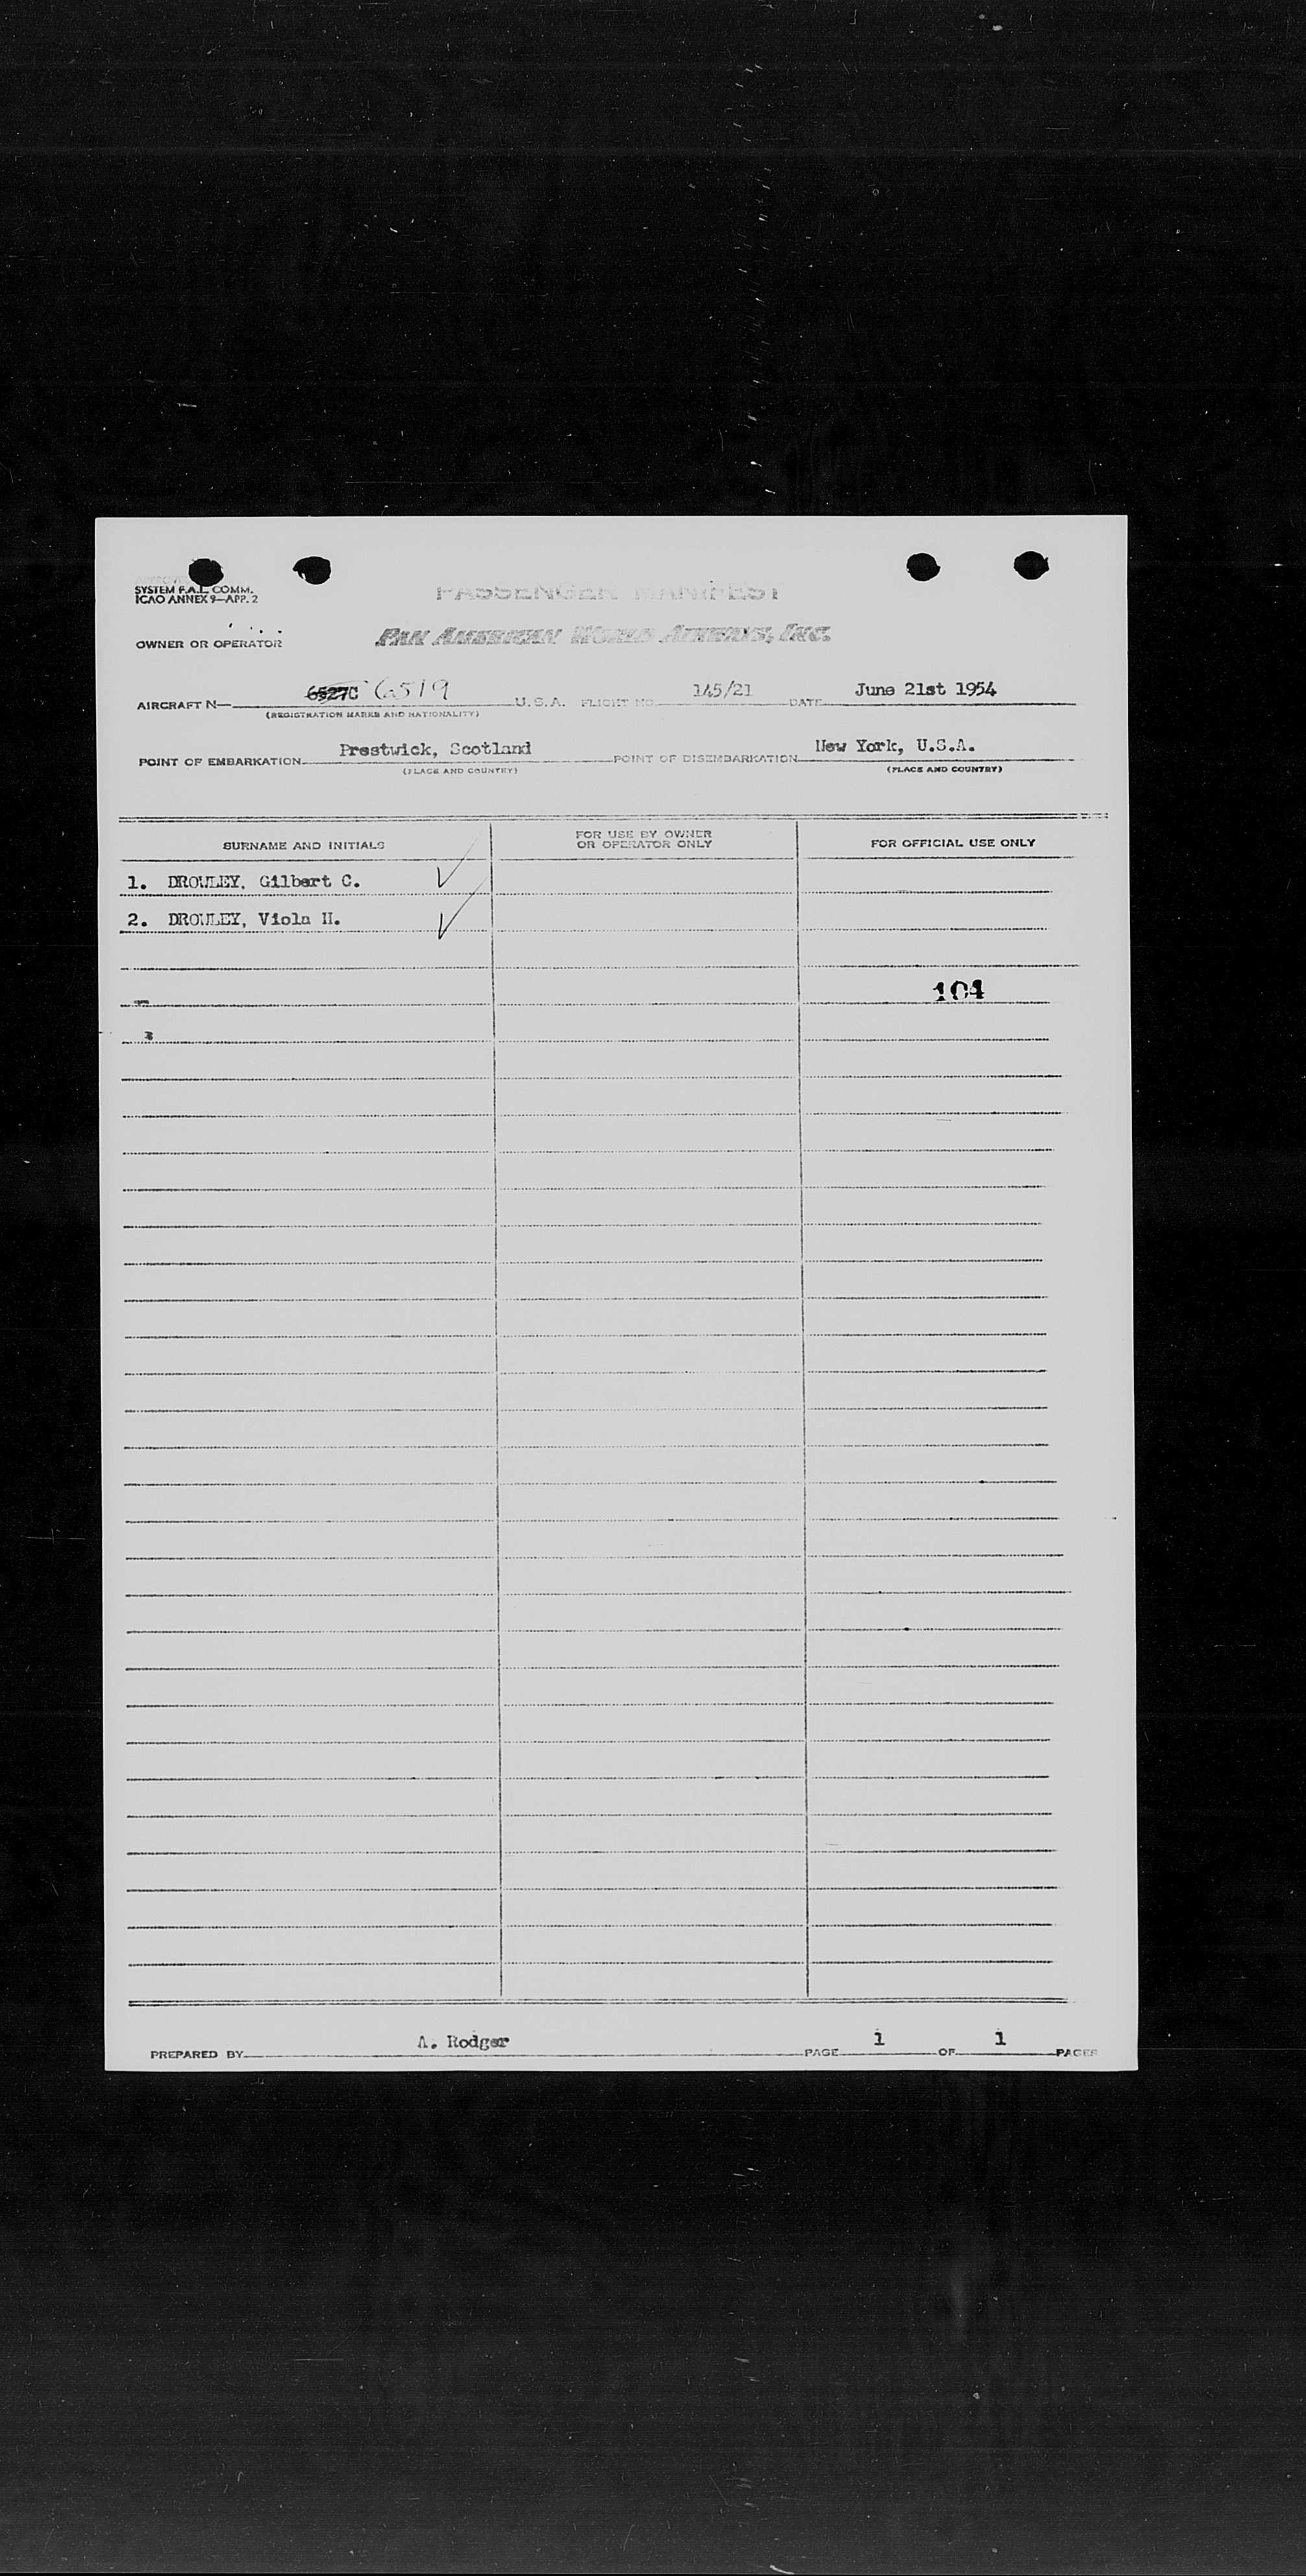 APPROVED
SYSTEM F.A.L. COMM.
ICAO ANNEX 9—APP. 2
PASSENGER MANIFEST
OWNER OR OPERATOR PAN AMERICAN WORLD AIRWAYS, INC.
AIRCRAFT N— 6527C 6519 U.S.A. FLIGHT NO. 145/21 DATE June 21st 1954
(REGISTRATION MARKS AND NATIONALITY)
POINT OF EMBARKATION Prestwick, Scotland POINT OF DISEMBARKATION New York, U.S.A.
(PLACE AND COUNTRY) (PLACE AND COUNTRY)
SURNAME AND INITIALS FOR USE BY OWNER OR OPERATOR ONLY FOR OFFICIAL USE ONLY
1. DROWLEY, Gilbert C.
2. DROWLEY, Viola H.
104
PREPARED BY A. Rodger PAGE 1 OF 1 PAGES